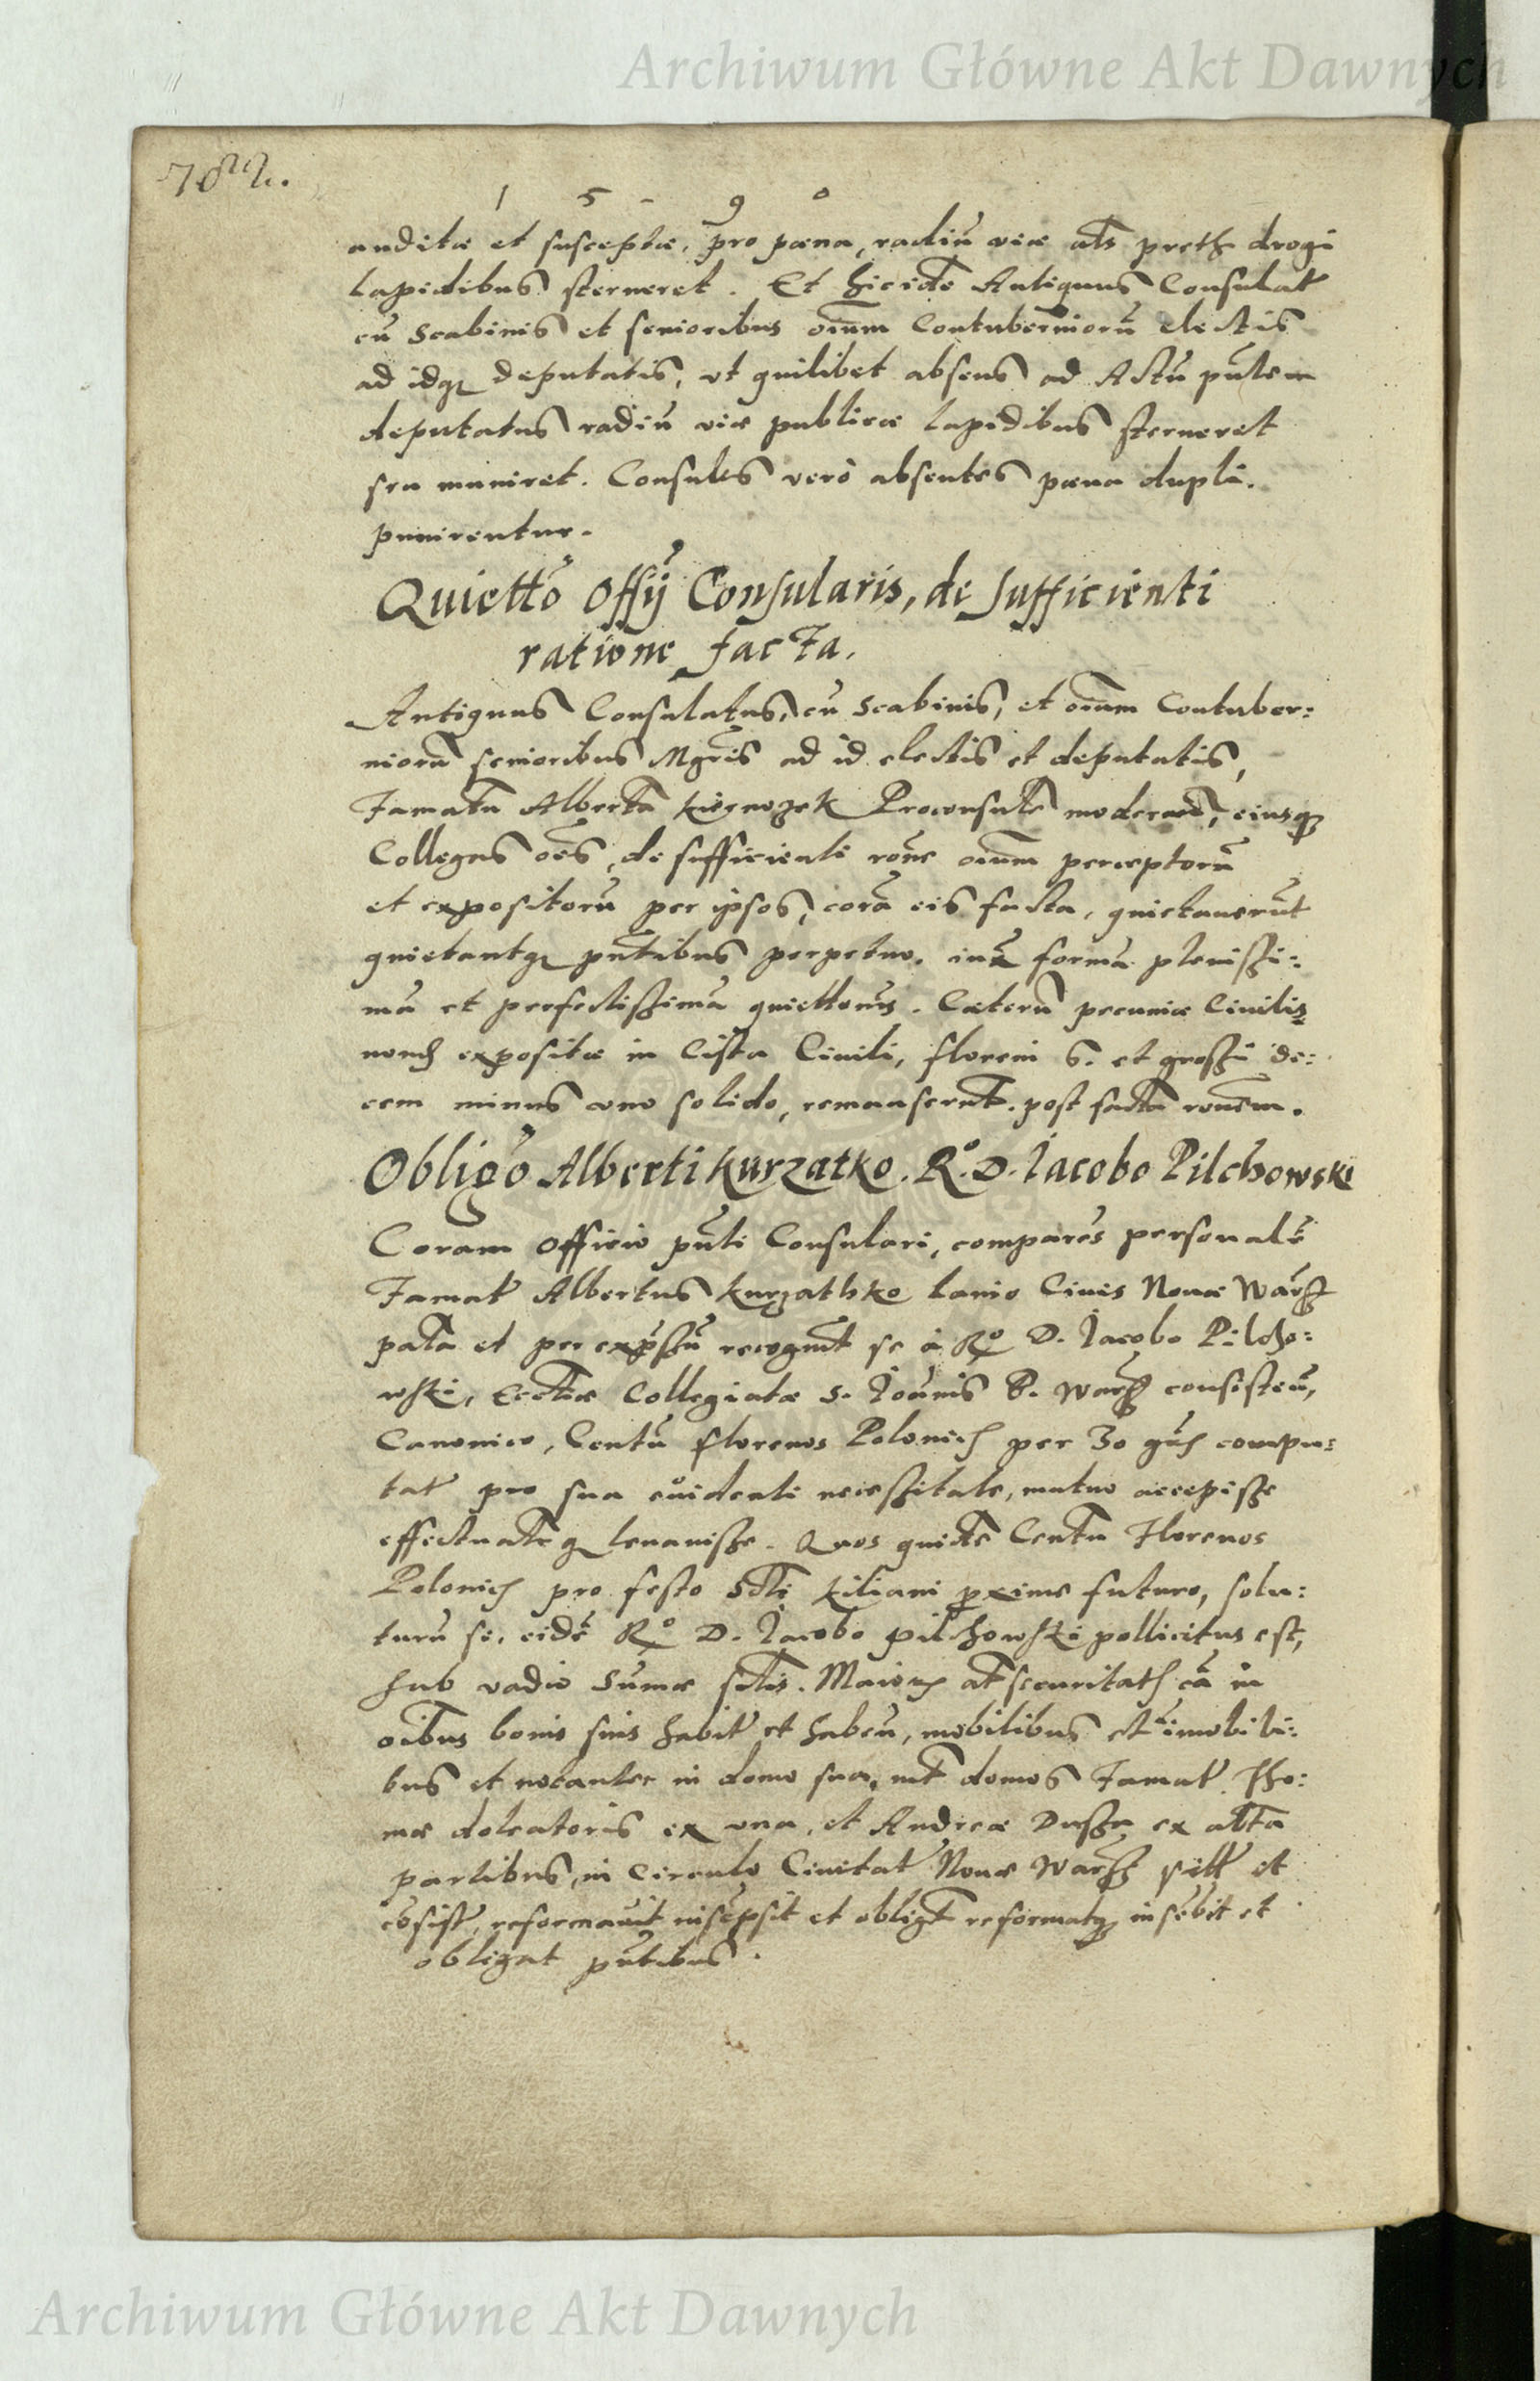 Archiwum Główne Akt Dawnych
1 5 - 9 0
auditæ et susceptæ, pro pœna, radiu viæ als preth drogi
Lapidibus sterneret. Et hicide Antiquus Consulat
cu Scabinis et senioribus oium Contuberniorū electis
ad idq deputatis, vt quilibet absens ad Actū pūtem
deputatus radiū viæ publicæ lapidibus sterneret
seu muniret. Consules verò absentes pœna dupli.
punirentur.
Quiettō Offÿ Consularis, de sufficienti
ratione facta.
Antiquus Consulatus, cū Scabinis, et oium Contuber:
niorū senioribus Mgris ad id electis et deputatis,
Famatū Albertū Proconsulē modernū, eiusq
Collegas oēs, de sufficienti rone oium perceptorū
et expositorū per ipsos, corā eis facta, quietauerūt
quietantq pūtibus perpetuo. iuxta formā plenissi:
mā et perfectissimā quiettonis. Cæterū pecuniæ Ciuilis
nondū expositæ in Cista Ciuili, floreni 6. et grossi de:
cem minus vno solido, remanserūt. post factā ronem.
Obligō Alberti Kurzatko. R.o D. Jacobo Pilchowski
Coram Officio pūti Consulari, comparēs personalr
Famat Albertus Kurzathko Lanio Ciuis Nouæ Warss
palā et per expssū recogūit se à R.o D. Jacobo Pilcho:
wski, Ecctiæ Collegiatæ S. Joānis B. Warss consisteñ,
Canonico, Centū florenos Polonich per 30 gūs compu:
tat pro sua euidenti necessitate, mutuo accepisse
effectualr q leuauisse. Quos quidē Centū Florenos
Polonich pro festo Scti Kiliani pxime futuro, solu:
turū se, eidē R.o D. Jacobo Pilchowski pollicitus est,
sub vadio Sumæ siīlis. Maioris at securitatis cā in
oibus bonis suis habit et habeñ, mobilibus et imobili:
bus et notanter in domo sua, int domos Famat Tho:
mæ doleatoris ex vna, et Andreæ Duszā ex altā
partibus, in Circulo Ciuitat Nouæ Warss sitt et
cōsist, reformauit inscrpsit et obligt reformatq inscbit et
obligat pūtibus.
Archiwum Główne Akt Dawnych